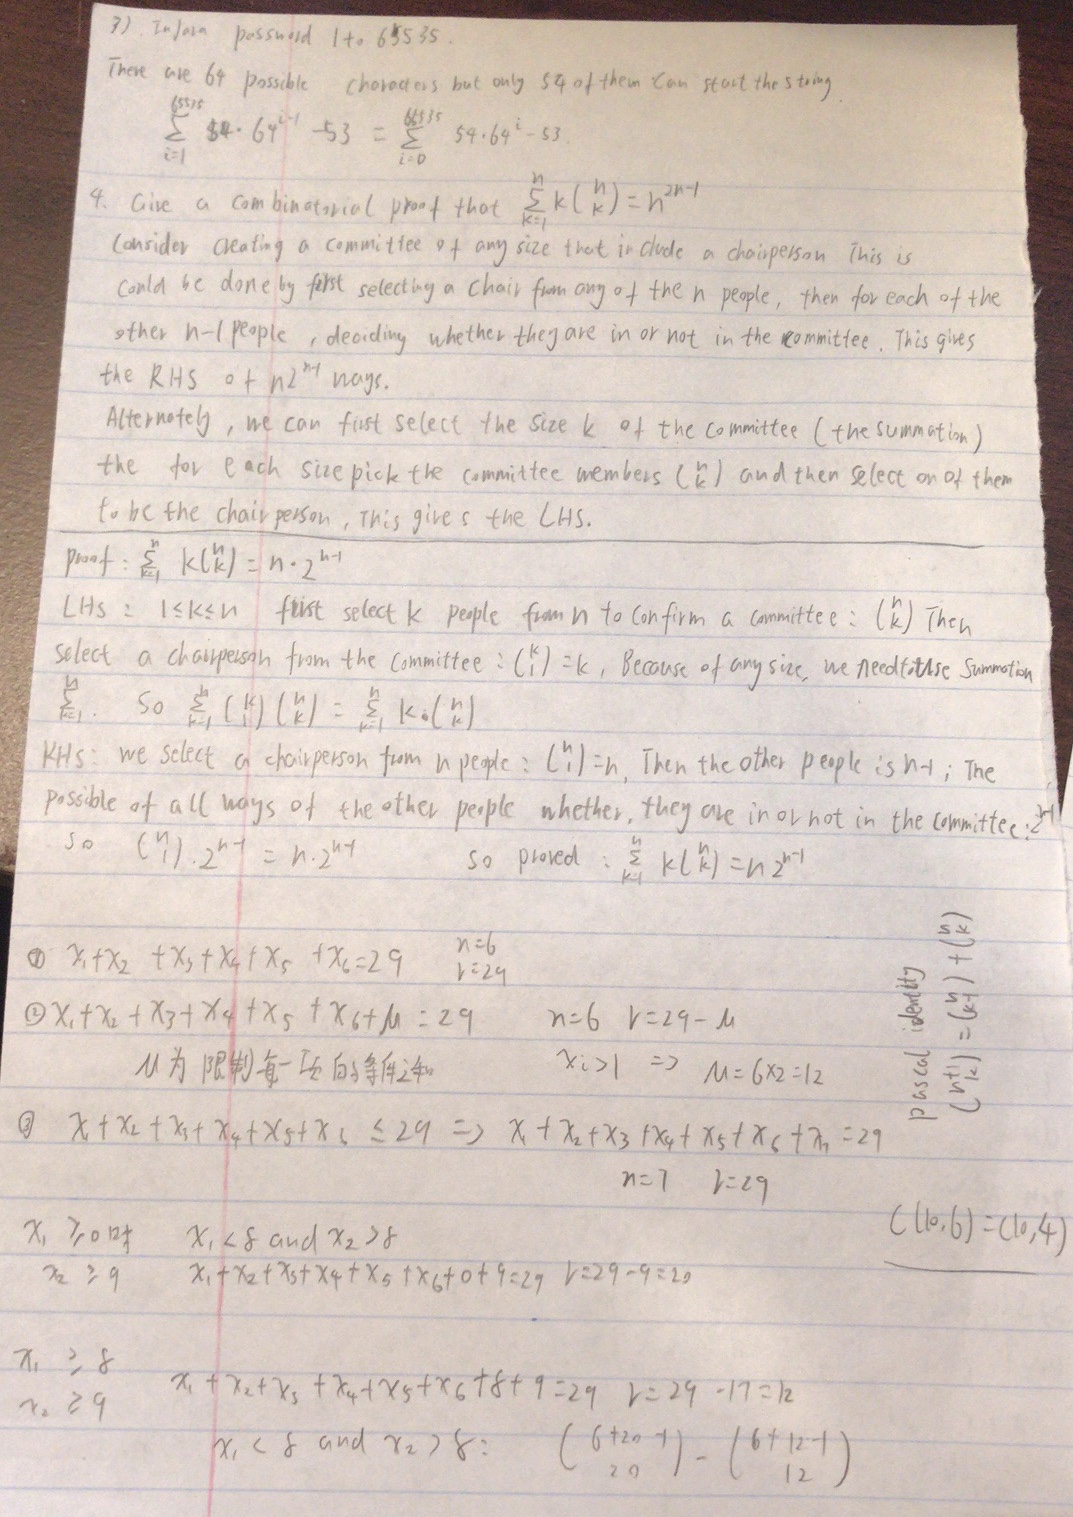 3) In Java password 1 to 65535.
There are 64 possible characters but only 54 of them can start the string
65535 ∑ i=1 54·64^(i-1) -53 = 65535 ∑ i=0 54·64^i -53
4. Give a combinatorial proof that ∑_{k=1}^{n} k(n k) = n^{2n-1}
Consider creating a committee of any size that include a chairperson This is
could be done by first selecting a chair from any of the n people, then for each of the
other n-1 people, deciding whether they are in or not in the committee. This gives
the RHS of n2^{n-1} ways.
Alternately, we can first select the size k of the committee (the summation)
the for each size pick the committee members (n k) and then select on of them
to be the chairperson, This gives the LHS.
proof: ∑_{k=1}^{n} k(n k) = n·2^{n-1}
LHS: 1≤k≤n first select k people from n to confirm a committee: (n k) Then
select a chairperson from the committee: (k 1)=k, Because of any size, we need to use summation
∑_{k=1}^{n}. So ∑_{k=1}^{n} (k 1)(n k) = ∑_{k=1}^{n} k·(n k)
RHS: we select a chairperson from n people: (n 1)=n, Then the other people is n-1; The
possible of all ways of the other people whether, they are in or not in the committee: 2^{n-1}
so (n 1)·2^{n-1} = n·2^{n-1} so proved: ∑_{k=1}^{n} k(n k) = n2^{n-1}
① x₁+x₂+x₃+x₄+x₅+x₆=29 n=6
r=29
② x₁+x₂+x₃+x₄+x₅+x₆+μ=29 n=6 r=29-μ
μ为限制每一项的条件之和 xᵢ>1 => μ=6×2=12
③ x₁+x₂+x₃+x₄+x₅+x₆ ≤ 29 => x₁+x₂+x₃+x₄+x₅+x₆+x₇=29
n=7 r=29
pascal identity
(n+1 k) = (n k-1) + (n k)
C(10,6)=(10,4)
x₁ ≥0时 x₁<8 and x₂>8
x₂ ≥9 x₁+x₂+x₃+x₄+x₅+x₆+0+9=29 r=29-9=20
x₁ ≥8
x₂ ≥9 x₁+x₂+x₃+x₄+x₅+x₆+8+9=29 r=29-17=12
x₁<8 and x₂>8: (6+20-1 20) - (6+12-1 12)